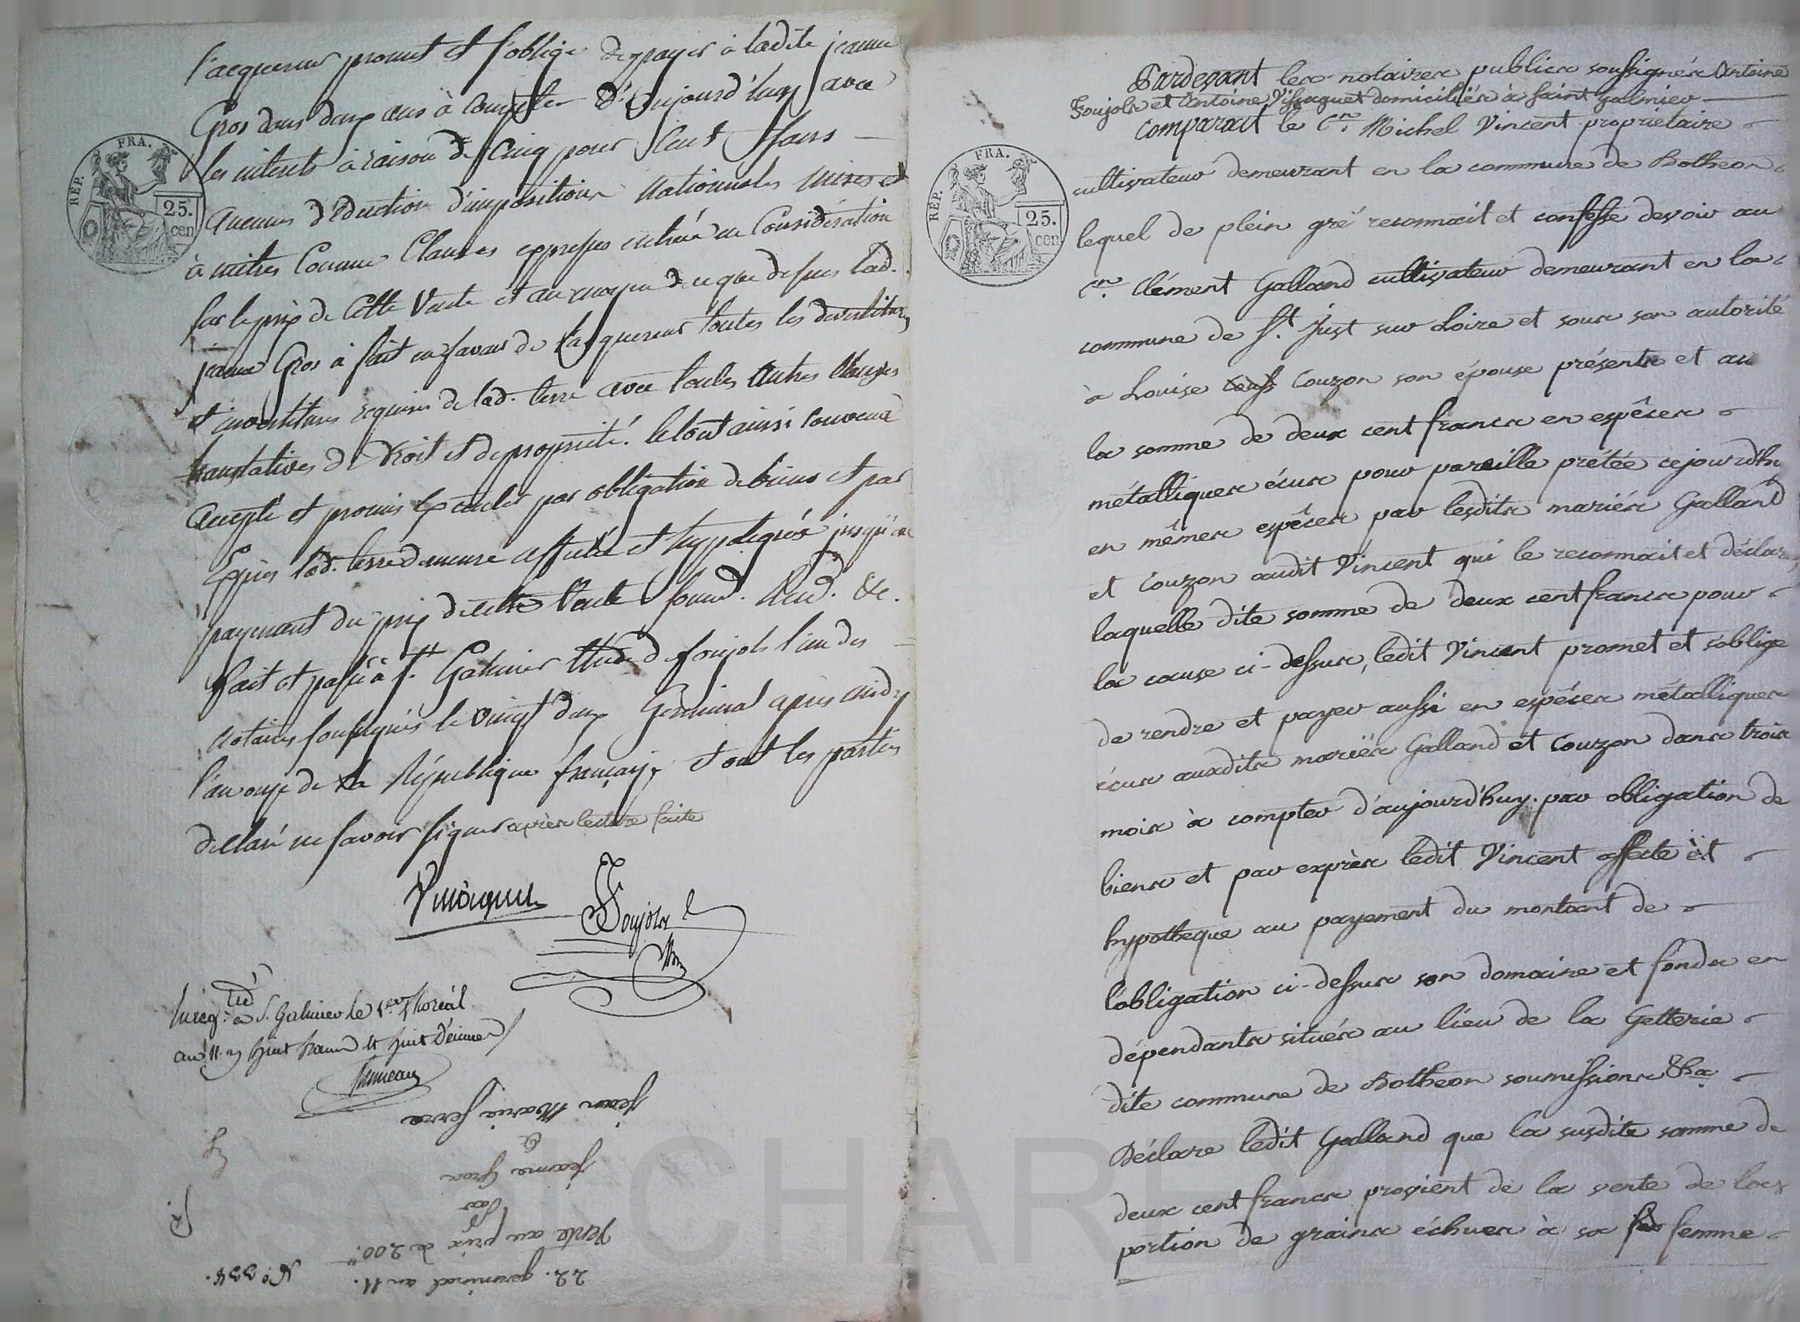 l'acquereur promet et s'oblige de payer à ladite jeanne
Gros dans deux ans à compter d'aujourd'huy avec
les interets à raison de cinq pour cent sans
aucune déduction d'impositions nationales mises et
à mettre comme clauses expresses entrée en considération
sur le prix de cette vente et au moyen de ce que dessus lad.
jeanne Gros à fait en faveur de l'acquereur toutes les devestitures
et investitures requises de lad. terre avec toutes autres clauses
translatives de droit et de propriété. le tout ainsi convenu
accepté et promis exécuter par obligation de biens et par
exprès lad. terre demeure affectée et hypothequée jusqu'au
payement du prix de cette vente soumd. Rend. &c.
fait et passé à St. Galmier étude de foujols l'un des
notaires soussignés le vingt deux Germinal après midy
l'an onze de la République française, et ont les parties
déclaré ne savoir signer après lecture faite
Foujols
Nre
à St. Galmier le 1er floréal
an 11 huit francs huit décimes
Jean Marie ferra
&
Jeanne Gros
par
Vente au prix de 200.
22. germinal an 11.
No. 334.
RÉP. FRA.
25.
cen
Pardevant les notaires publics soussignés Antoine
Foujols et Antoine Vissaguet domiciliés à saint galmier
comparait le Cen. Michel Vincent propriétaire
cultivateur demeurant en la commune de Botheon
lequel de plein gré reconnait et confesse devoir au
Cen. Clément Galland cultivateur demeurant en la
commune de St. Just sur Loire et sous son autorité
à Louise Couzon son épouse présente et au
la somme de deux cent francs en espêces
métalliques écus pour pareille prêtée cejourdhuy
en mêmes espêces par lesdits mariés Galland
et Couzon audit Vincent qui le reconnait et déclare,
laquelle dite somme de deux cent francs pour
la cause ci-dessus, ledit Vincent promet et s'oblige
de rendre et payer aussi en espéces métalliques
écus auxdits mariés Galland et Couzon dans trois
mois à compter d'aujourd'huy. par obligation de
biens et par exprès ledit Vincent affecte et
hypothéque au payement du montant de
l'obligation ci-dessus son domaine et fonds en
dépendants situés au lieu de la Getterie
dite commune de Botheon soumissions &ca.
Déclare ledit Galland que la susdite somme de
deux cent francs provient de la vente de la
portion de grains échues à sa femme
RÉP. FRA.
25.
cen